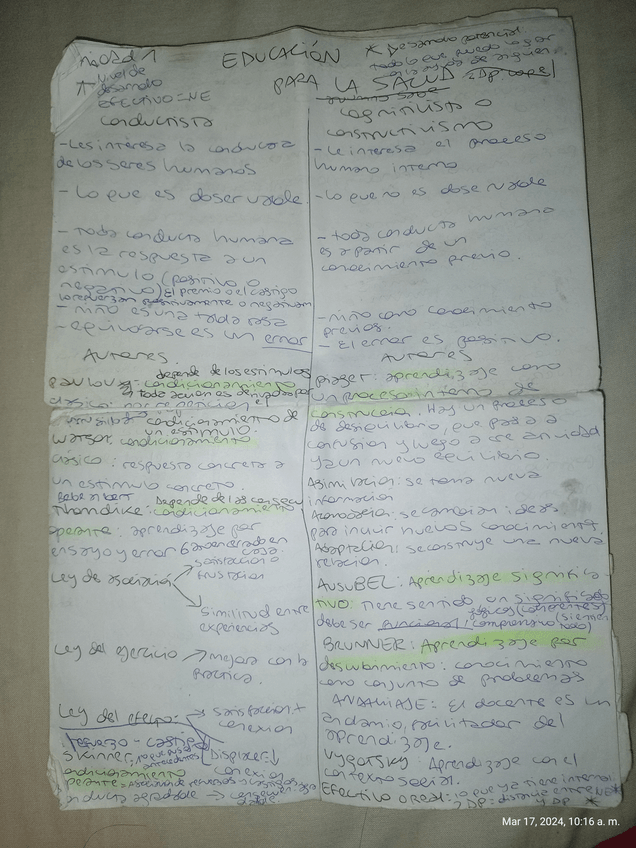 EDUCACIÓN
PARA LA SALUD
Unidad 1
↑ Nivel de
desarrollo
EFECTIVO = NE
* Desarrollo potencial
todo lo que puedo lograr
con la ayuda de alguien.
Conductista
- Les interesa la conducta
de los seres humanos
- Lo que es observable
- toda conducta humana
es la respuesta a un
estimulo (positivo o
negativo) El premio o el castigo
lo refuerzan positivamente o negativam
- niño es una tabla rasa
- equivocarse es un error
Autores
depende de los estimulos
Pavlov: condicionamiento
clasico
condicionamiento de
un estimulo.
Watson condicionamiento
clásico: respuesta concreta a
un estimulo concreto.
Bebe albert Depende de las consecu
Thorndike: condicionamiento
operante: aprendizaje por
ensayo y error
Ley de asociación
satisfacción o
frustración
Similitud entre
experiencias
Ley del ejercicio → mejora con la
práctica.
Ley del efecto: → satisfacción +
conexión
refuerzo - castigo
Displacer ↓
conexion
Skinner,
condicionamiento
operante:
conducta agradable →
Cognitivista o
constructivismo
- Le interesa el proceso
humano interno
- Lo que no es observable
- toda conducta humana
es a partir de un
conocimiento previo.
- niño como conocimiento
previos.
- El error es positivo.
Autores
Piaget: aprendizaje como
un proceso interno de
construcción. Hay un proceso
de desiquilibrio, que pasa a
confusion y luego a creatividad
y a un nuevo equilibrio.
Asimilacion: se toma nueva
informacion
Acomodacion: se cambian ideas
para incluir nuevos conocimientos.
Adaptacion: se construye una nueva
relacion.
AUSUBEL: Aprendizaje significa
tivo: Tiene sentido un significado
lógicos (coherentes)
debe ser funcional, comprensivo
BRUNNER: Aprendizaje por
descubrimiento: conocimiento
como conjunto de problemas
ANDAMIAJE: El docente es un
andamio, facilitador del
aprendizaje.
Vygotsky: Aprendizaje con el
contexto social.
Efectivo o real: lo que ya tiene interna
ZDP: distancia entre NE*
y DP *
Mar 17, 2024, 10:16 a. m.